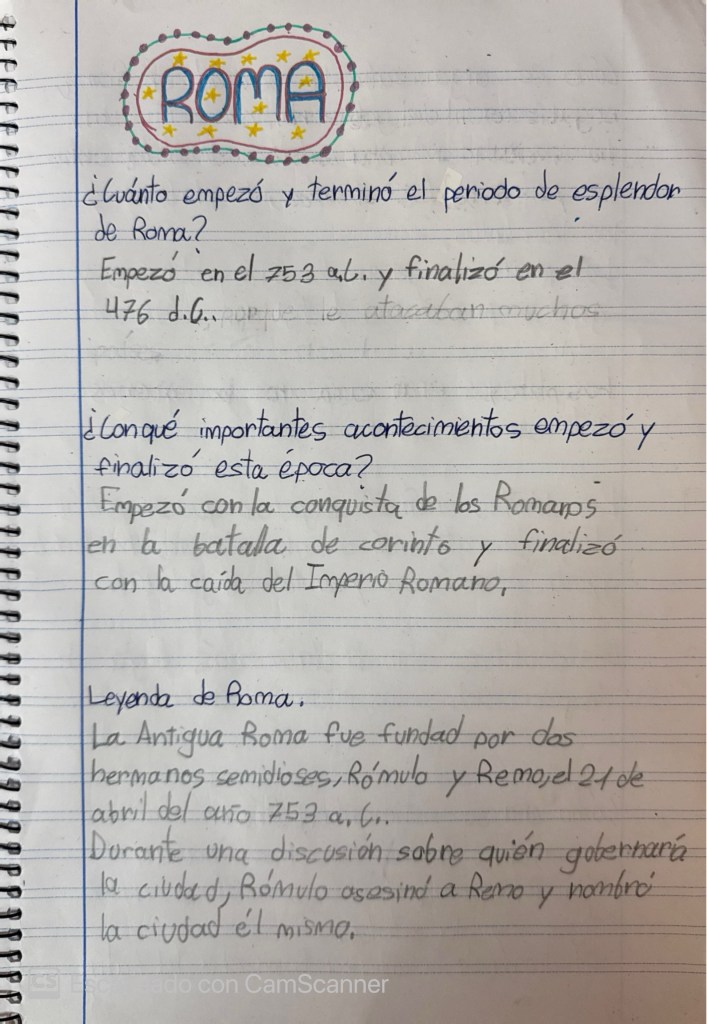 ROMA
¿Cuánto empezó y terminó el periodo de esplendor
de Roma?
Empezó en el 753 a.C. y finalizó en el
476 d.C..
¿Con qué importantes acontecimientos empezó y
finalizó esta época?
Empezó con la conquista de los Romanos
en la batalla de corinto y finalizó
con la caída del Imperio Romano.
Leyenda de Roma.
La Antigua Roma fue fundad por dos
hermanos semidioses, Rómulo y Remo, el 21 de
abril del año 753 a.C..
Durante una discusión sobre quién gobernará
la ciudad, Rómulo asesinó a Remo y nombró
la ciudad él mismo.
CS Escaneado con CamScanner